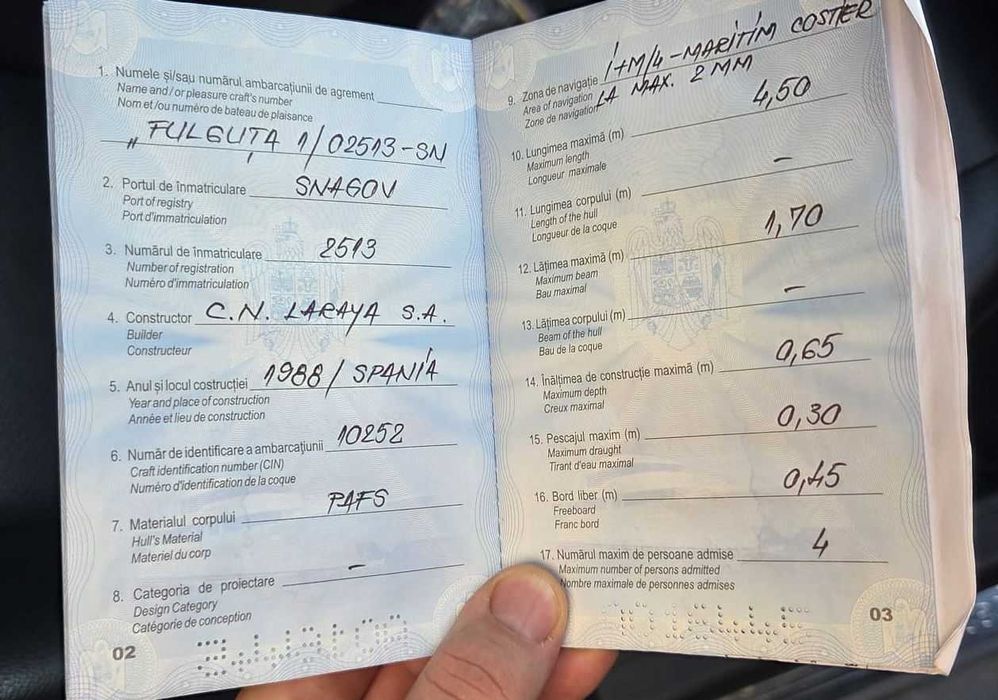 1. Numele și/sau numărul ambarcațiunii de agrement
Name and / or pleasure craft's number
Nom et /ou numéro de bateau de plaisance
„FULGUȚA 1/02513-SN
2. Portul de înmatriculare SNAGOV
Port of registry
Port d'immatriculation
3. Numărul de înmatriculare 2513
Number of registration
Numéro d'immatriculation
4. Constructor C.N. LARAYA S.A.
Builder
Constructeur
5. Anul și locul costrucției 1988 / SPANÍA
Year and place of construction
Année et lieu de construction
6. Număr de identificare a ambarcațiunii 10252
Craft identification number (CIN)
Numéro d'identification de la coque
7. Materialul corpului PAFS
Hull's Material
Materiel du corp
8. Categoria de proiectare –
Design Category
Catégorie de conception
02
9. Zona de navigație I+M/4 - MARITIM COSTIER
Area of navigation LA MAX. 2 MM
Zone de navigation
10. Lungimea maximă (m) 4,50
Maximum length
Longueur maximale
11. Lungimea corpului (m) –
Length of the hull
Longueur de la coque
12. Lățimea maximă (m) 1,70
Maximum beam
Bau maximal
13. Lățimea corpului (m) –
Beam of the hull
Bau de la coque
14. Înălțimea de construcție maximă (m) 0,65
Maximum depth
Creux maximal
15. Pescajul maxim (m) 0,30
Maximum draught
Tirant d'eau maximal
16. Bord liber (m) 0,45
Freeboard
Franc bord
17. Numărul maxim de persoane admise 4
Maximum number of persons admitted
Nombre maximale de personnes admises
03